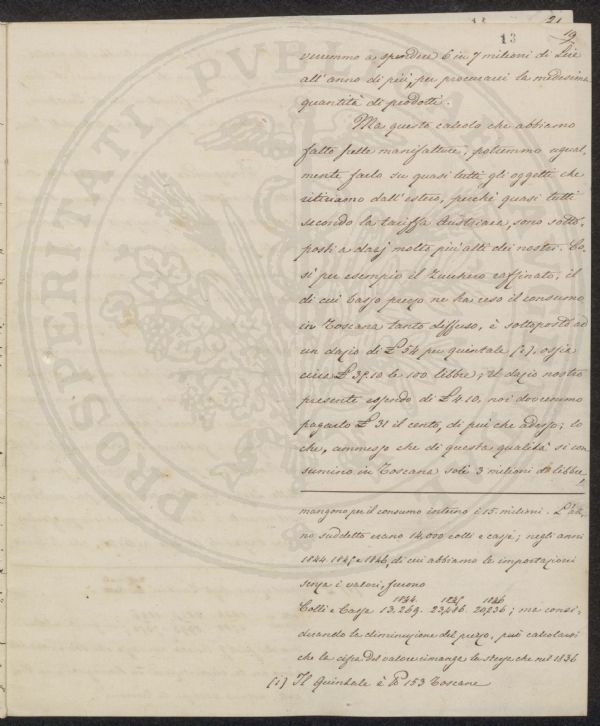 21
19
13
veremmo a spendere 6 in 7 milioni di Lire
all'anno di più, per procurarci la medesima
quantità di prodotti.
Ma questo calcolo che abbiamo
fatto sulle manifatture, potremmo ugual-
mente farlo su quasi tutti gli oggetti che
ritiriamo dall'estero, perché quasi tutti
secondo la tariffa Austriaca, sono sotto-
posti a dazj molto più alti dei nostri. Co-
sì per esempio il Zucchero raffinato, il
di cui basso prezzo ne ha reso il consumo
in Toscana tanto diffuso, è sottoposto ad
un dazio di £ 54 per quintale (1), ossia
circa £ 35.10 le 100 libbre; il dazio nostro
presente essendo di £ 4 10, noi dovremmo
pagarlo £ 31 il cento, di più che adesso; lo
che, ammesso che di questa qualità si con
sumino in Toscana soli 3 milioni di libbre,
mangono per il consumo interno i 15 milioni. L'an-
no suddetto erano 14,000 colli e casse; negli anni
1844 1845 e 1846, di cui abbiamo le importazioni
senza i valori, furono
1844. 1845 1846
Colli e Casse 13,269. 23,486 20,236; ma consi-
derando la diminuzione del prezzo, può calcolarsi
che la cifra del valore rimanga la stessa che nel 1836
(1) Il Quintale è lb 153 Toscane
PROSPERITATI PVBLICAE